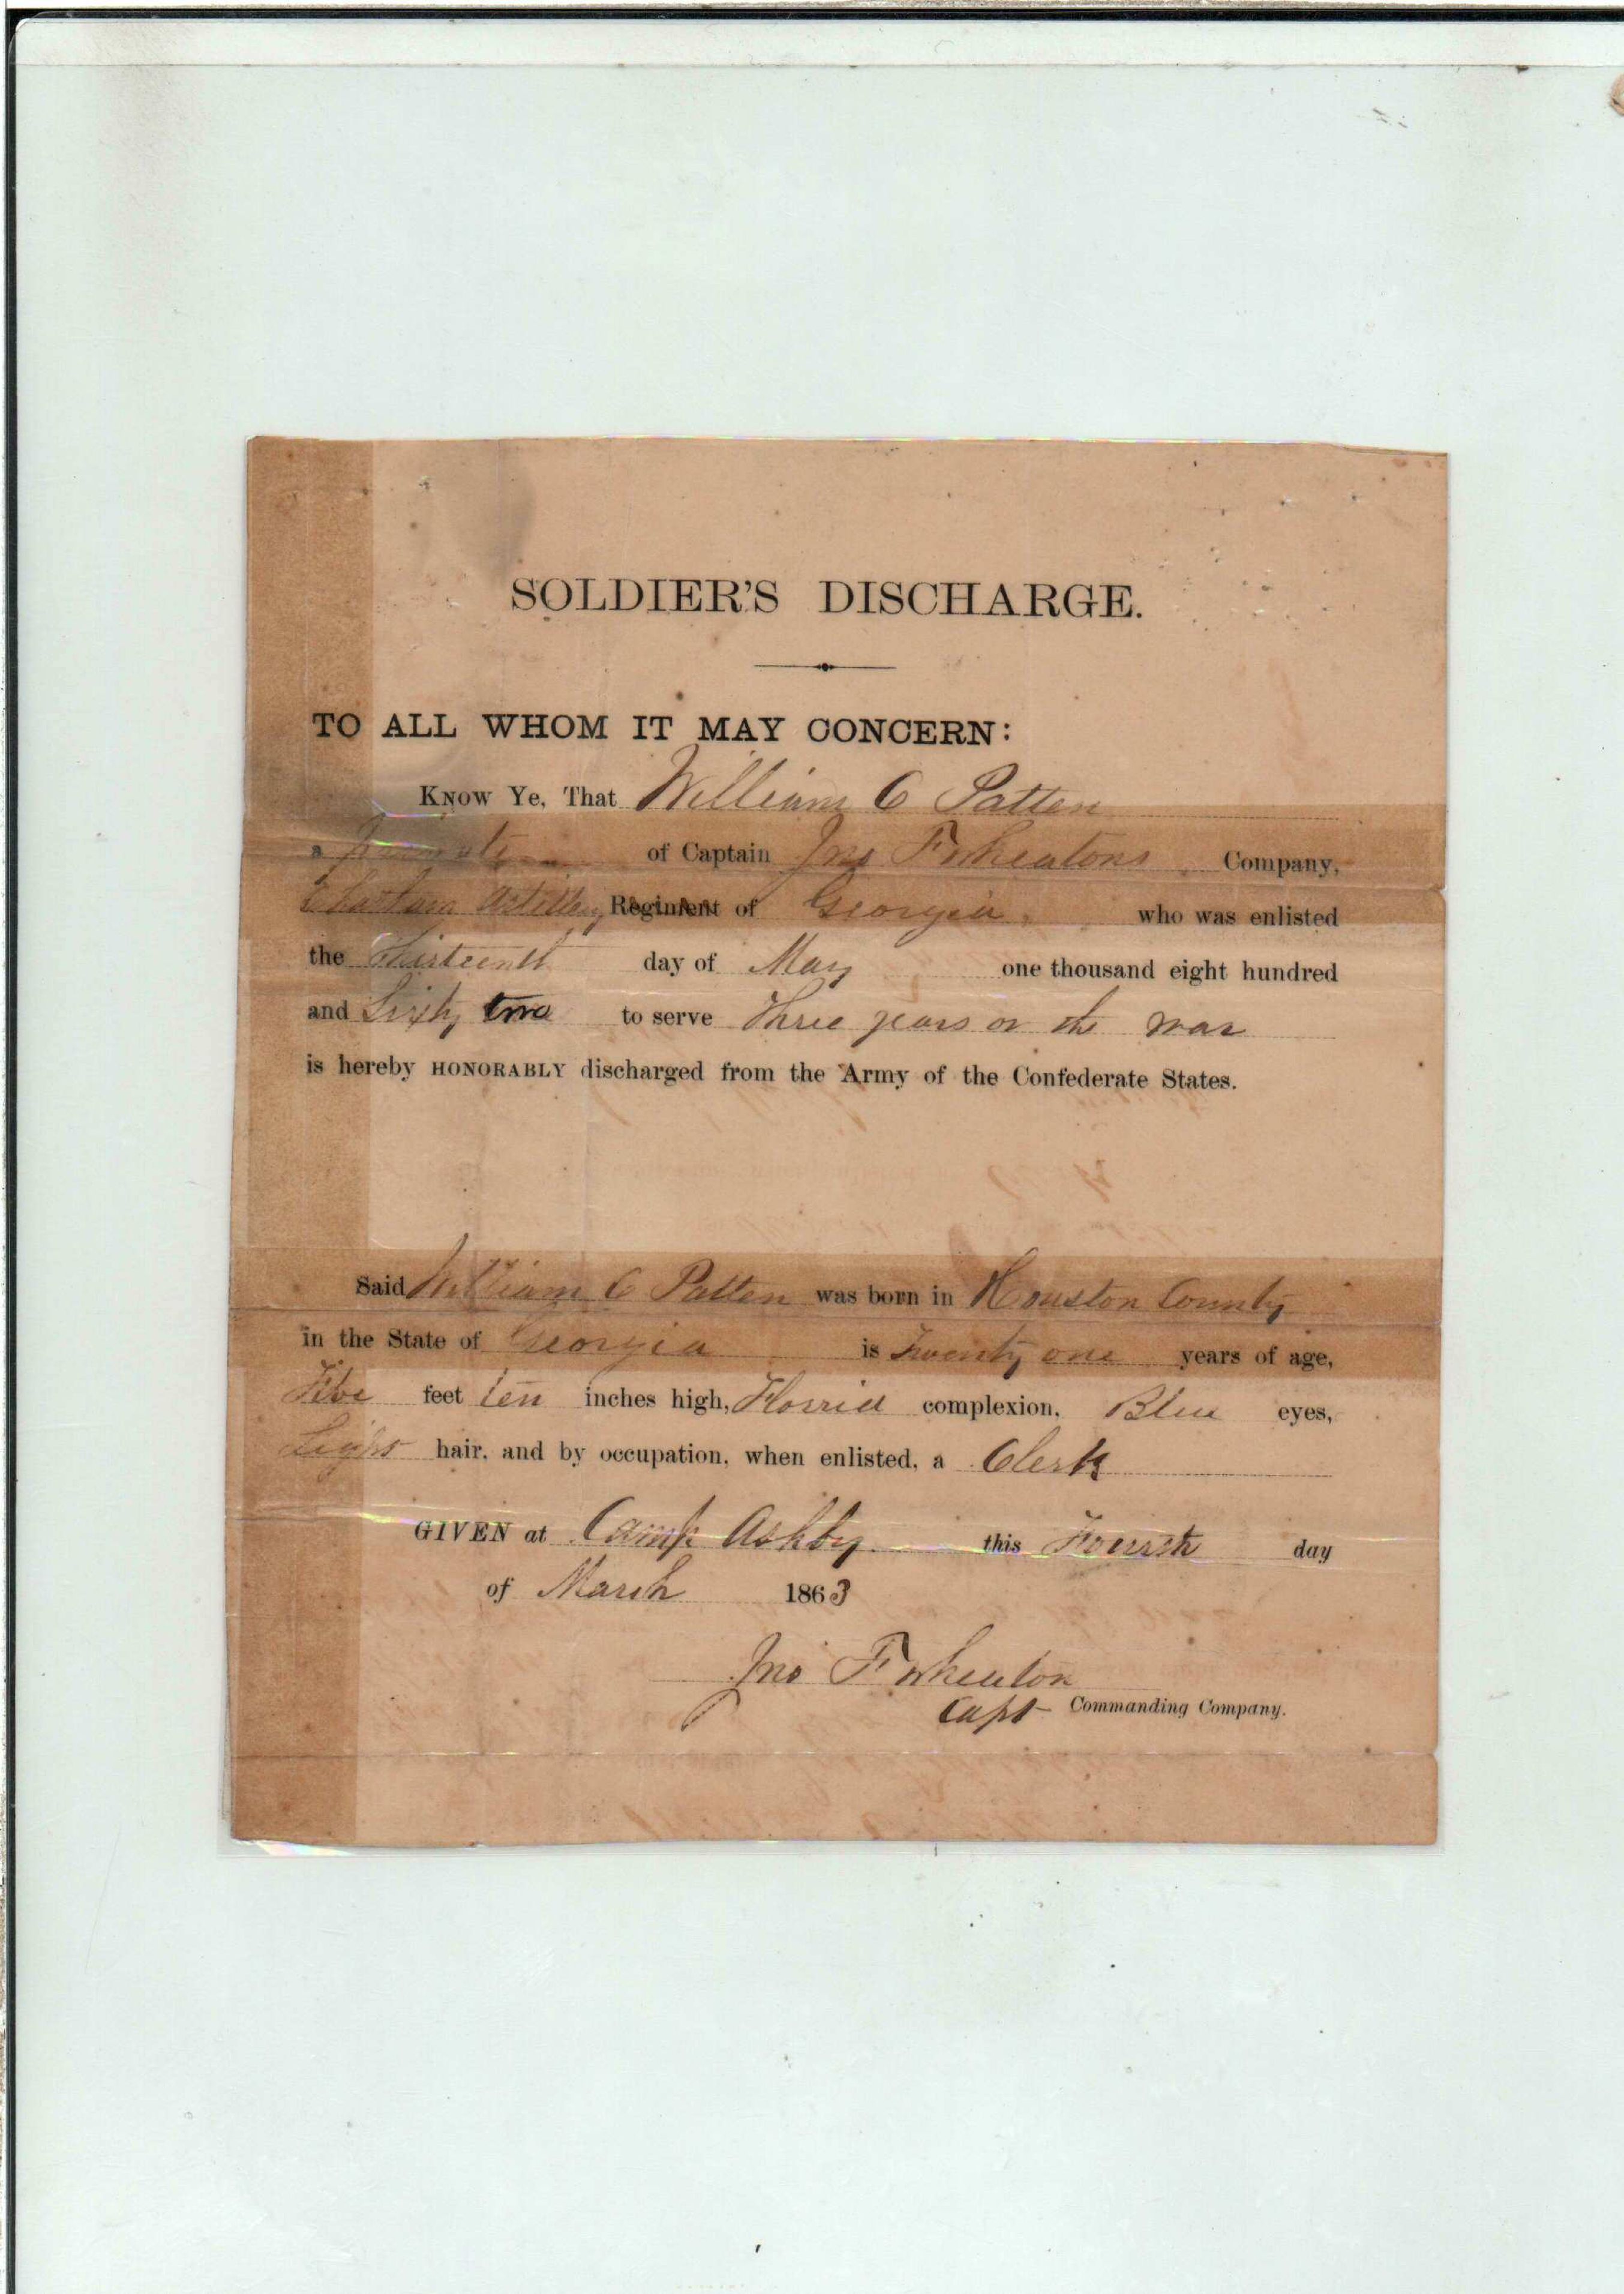 SOLDIER'S DISCHARGE.
TO ALL WHOM IT MAY CONCERN:
Know Ye, That William C Patten
a private of Captain Jno F Wheatons Company,
Chatham Artillery Regiment of Georgia who was enlisted
the Thirteenth day of May one thousand eight hundred
and Sixty two to serve Three years or the war
is hereby HONORABLY discharged from the Army of the Confederate States.
Said William C Patten was born in Houston County
in the State of Georgia is Twenty one years of age,
Five feet ten inches high, Florrid complexion, Blue eyes,
Light hair, and by occupation, when enlisted, a Clerk
GIVEN at Camp Ashby this Fourth day
of March 1863
Jno F Wheaton
Capt Commanding Company.